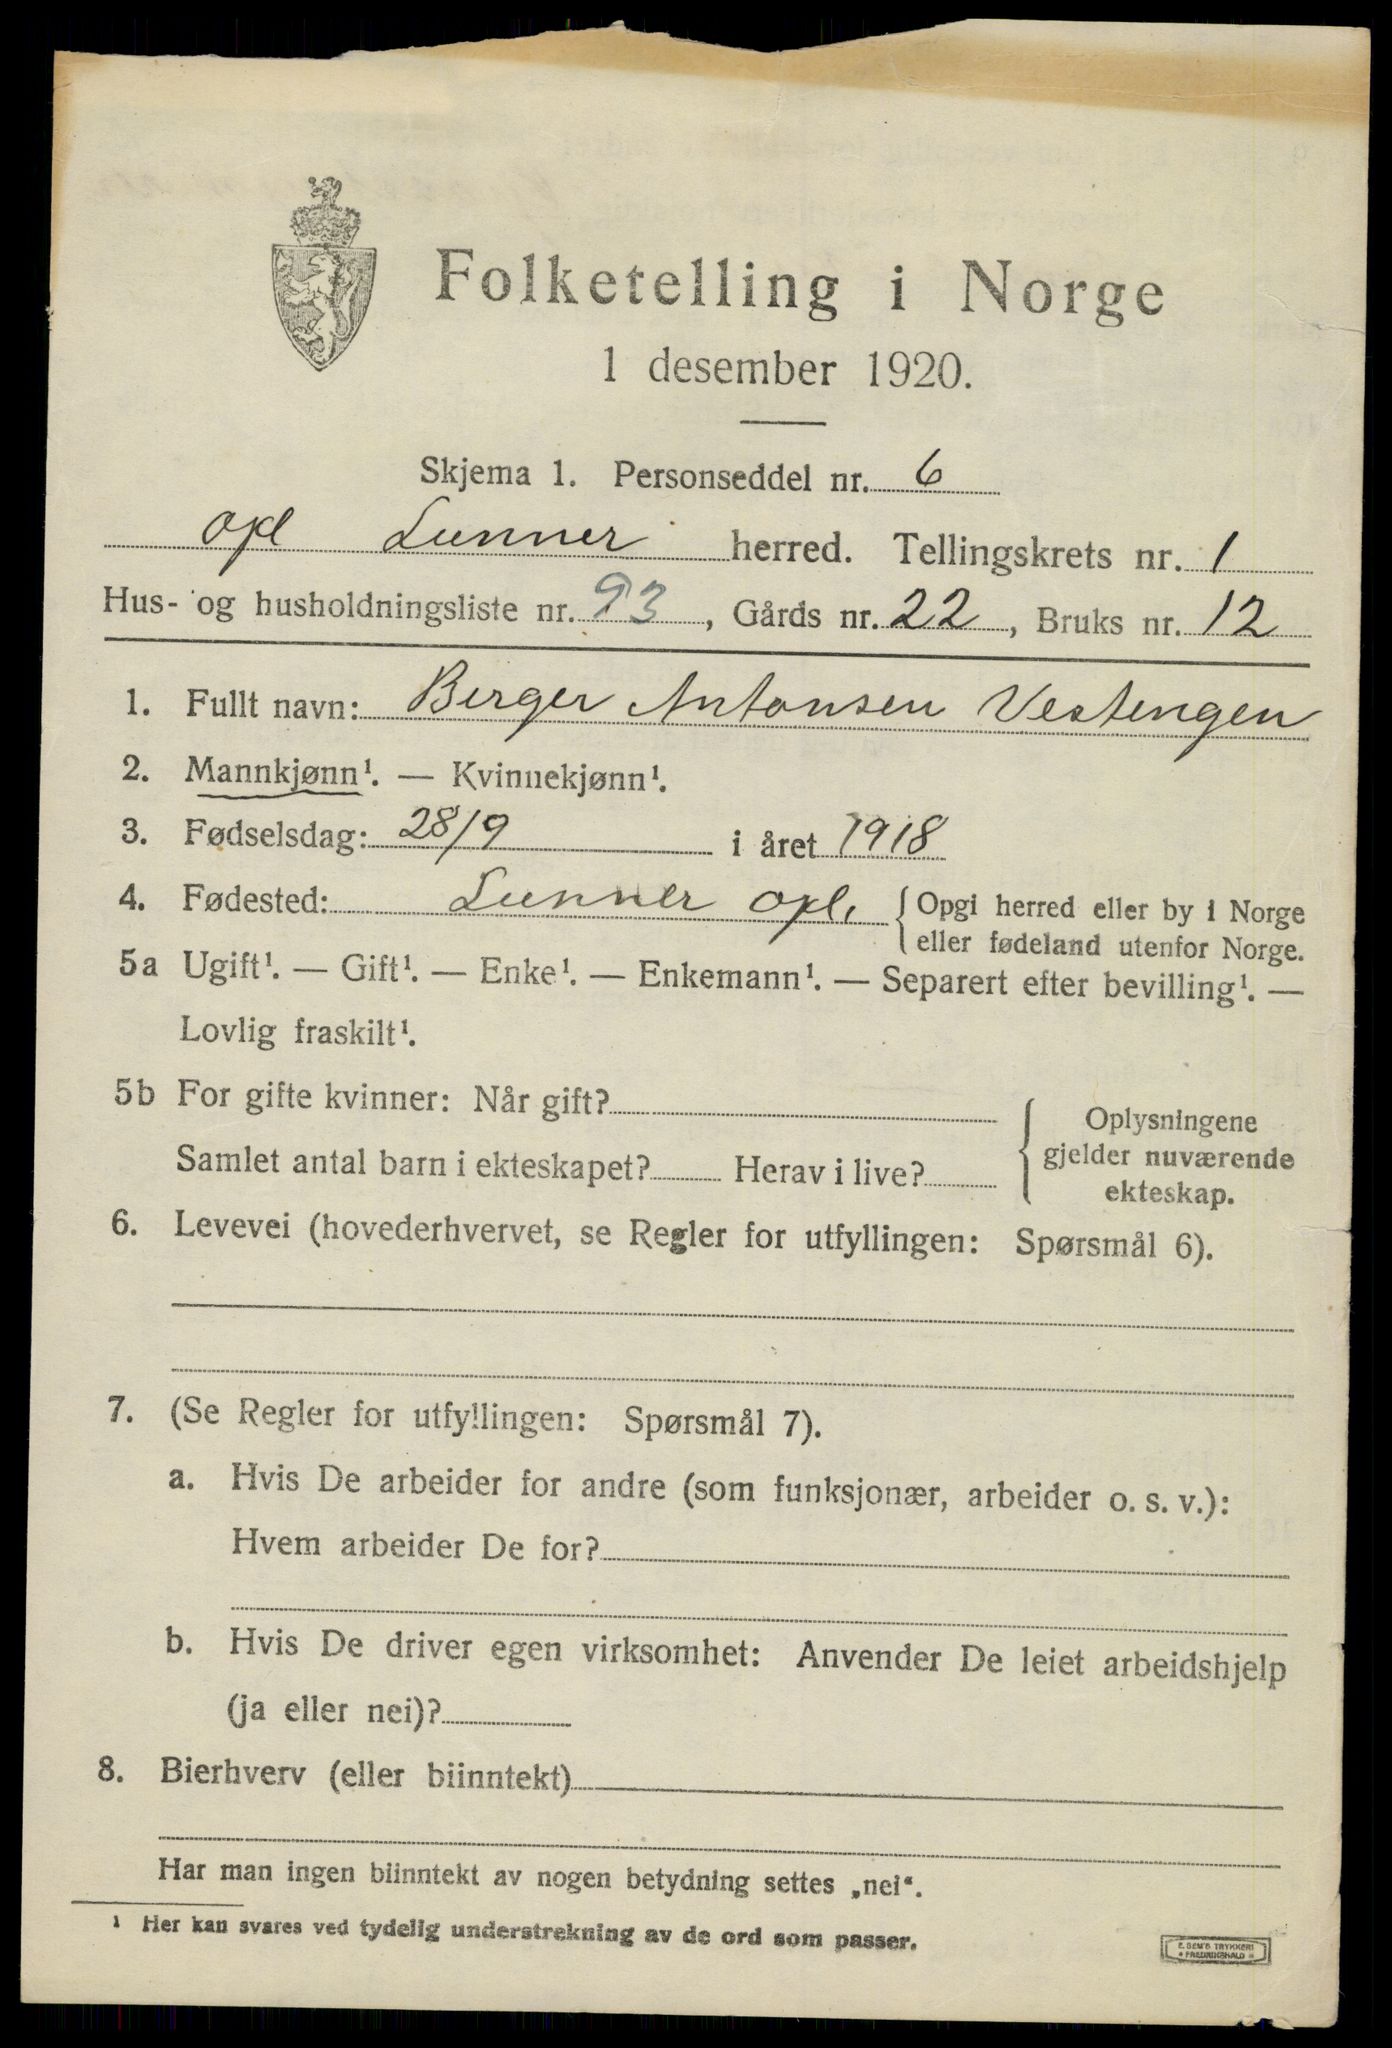 Folketelling i Norge
1 desember 1920.
Skjema 1. Personseddel nr. 6
opl Lunner herred. Tellingskrets nr. 1
Hus- og husholdningsliste nr. 93, Gårds nr. 22, Bruks nr. 12
1. Fullt navn: Berger Antonsen Vestengen
2. Mannkjønn¹. — Kvinnekjønn¹.
3. Fødselsdag: 28/9 i året 1918
4. Fødested: Lunner opl. { Opgi herred eller by i Norge
eller fødeland utenfor Norge.
5a Ugift¹. — Gift¹. — Enke¹. — Enkemann¹. — Separert efter bevilling¹. —
Lovlig fraskilt¹.
5b For gifte kvinner: Når gift?
Samlet antal barn i ekteskapet? Herav i live?
{ Oplysningene
gjelder nuværende
ekteskap.
6. Levevei (hovederhvervet, se Regler for utfyllingen: Spørsmål 6).
7. (Se Regler for utfyllingen: Spørsmål 7).
a. Hvis De arbeider for andre (som funksjonær, arbeider o. s. v.):
Hvem arbeider De for?
b. Hvis De driver egen virksomhet: Anvender De leiet arbeidshjelp
(ja eller nei)?
8. Bierhverv (eller biinntekt)
Har man ingen biinntekt av nogen betydning settes „nei“.
¹ Her kan svares ved tydelig understrekning av de ord som passer.
E. SEM'S TRYKKERI
• FREDRIKSHALD •